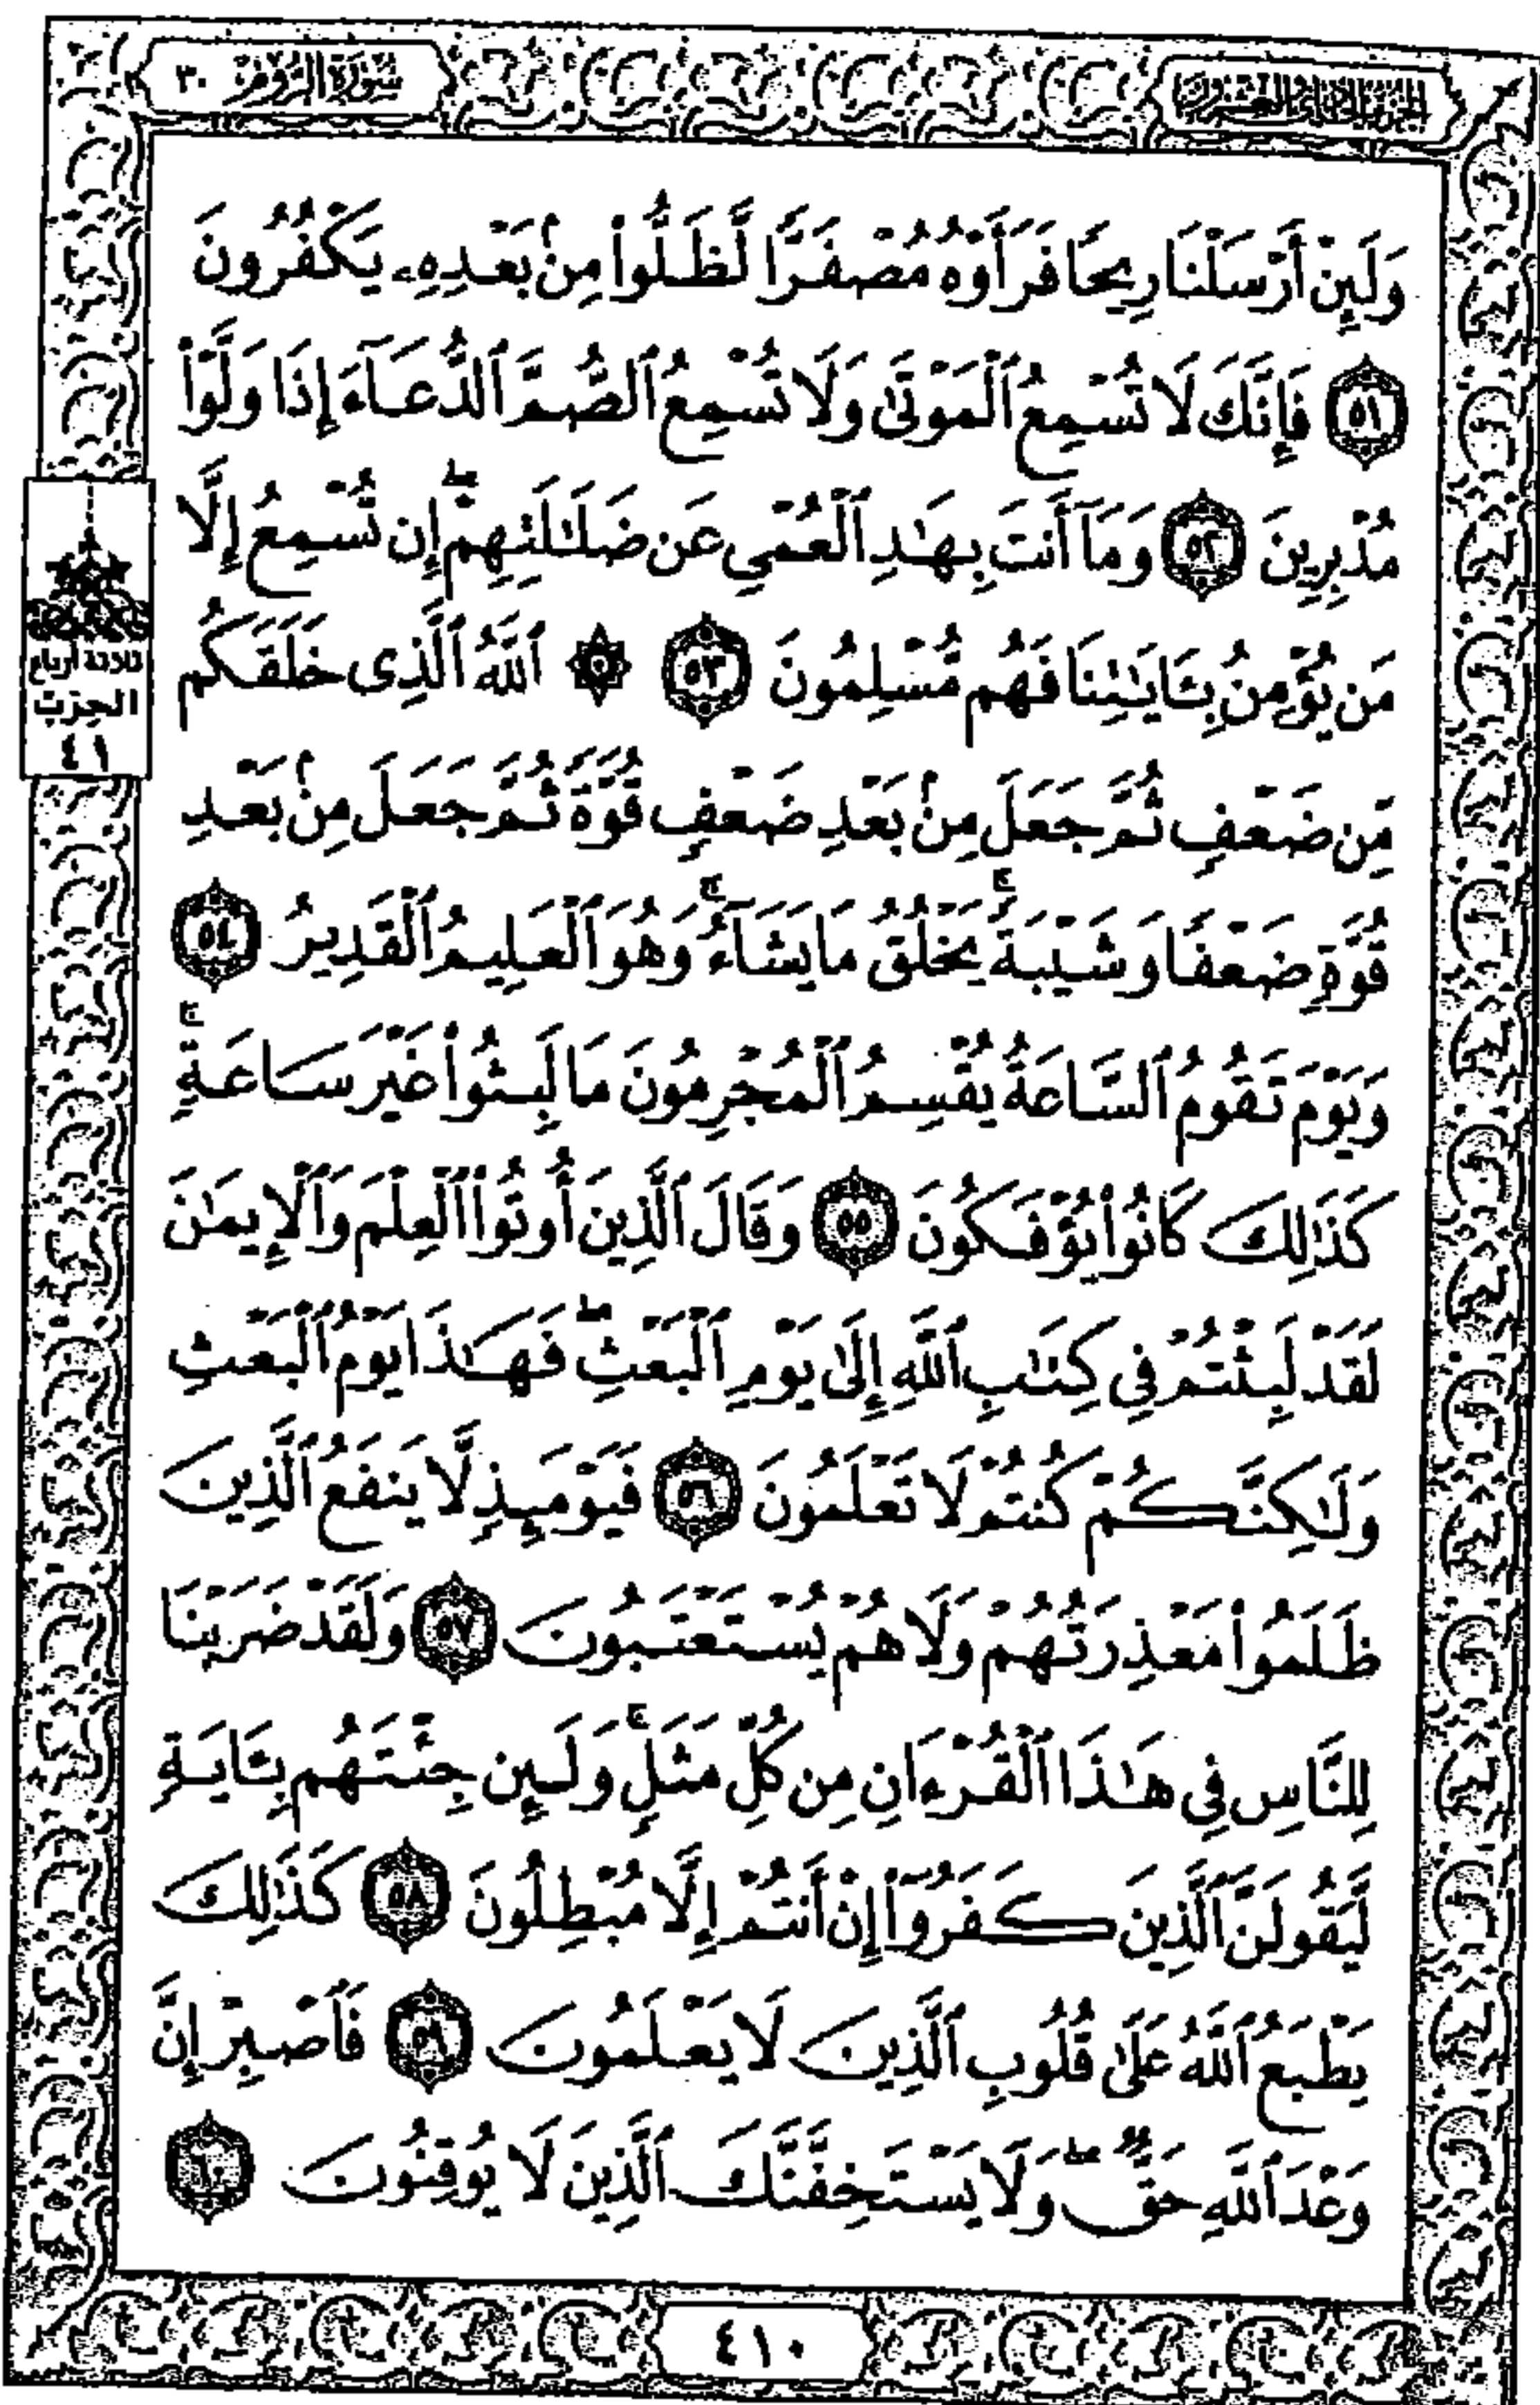 سُورَةُ الرُّومِ ٣٠
الجُزْءُ الحَادِي وَالعِشْرُونَ
وَلَئِنْ أَرْسَلْنَا رِيحًا فَرَأَوْهُ مُصْفَرًّا لَّظَلُّوا۟ مِنۢ بَعْدِهِۦ يَكْفُرُونَ
٥١ فَإِنَّكَ لَا تُسْمِعُ ٱلْمَوْتَىٰ وَلَا تُسْمِعُ ٱلصُّمَّ ٱلدُّعَآءَ إِذَا وَلَّوْا۟
مُدْبِرِينَ ٥٢ وَمَآ أَنتَ بِهَـٰدِ ٱلْعُمْىِ عَن ضَلَـٰلَتِهِمْ ۖ إِن تُسْمِعُ إِلَّا
مَن يُؤْمِنُ بِـَٔايَـٰتِنَا فَهُم مُّسْلِمُونَ ٥٣ ۞ ٱللَّهُ ٱلَّذِى خَلَقَكُم
مِّن ضَعْفٍ ثُمَّ جَعَلَ مِنۢ بَعْدِ ضَعْفٍ قُوَّةً ثُمَّ جَعَلَ مِنۢ بَعْدِ
قُوَّةٍ ضَعْفًا وَشَيْبَةً ۚ يَخْلُقُ مَا يَشَآءُ ۚ وَهُوَ ٱلْعَلِيمُ ٱلْقَدِيرُ ٥٤
وَيَوْمَ تَقُومُ ٱلسَّاعَةُ يُقْسِمُ ٱلْمُجْرِمُونَ مَا لَبِثُوا۟ غَيْرَ سَاعَةٍ ۚ
كَذَٰلِكَ كَانُوا۟ يُؤْفَكُونَ ٥٥ وَقَالَ ٱلَّذِينَ أُوتُوا۟ ٱلْعِلْمَ وَٱلْإِيمَـٰنَ
لَقَدْ لَبِثْتُمْ فِى كِتَـٰبِ ٱللَّهِ إِلَىٰ يَوْمِ ٱلْبَعْثِ ۖ فَهَـٰذَا يَوْمُ ٱلْبَعْثِ
وَلَـٰكِنَّكُمْ كُنتُمْ لَا تَعْلَمُونَ ٥٦ فَيَوْمَئِذٍ لَّا يَنفَعُ ٱلَّذِينَ
ظَلَمُوا۟ مَعْذِرَتُهُمْ وَلَا هُمْ يُسْتَعْتَبُونَ ٥٧ وَلَقَدْ ضَرَبْنَا
لِلنَّاسِ فِى هَـٰذَا ٱلْقُرْءَانِ مِن كُلِّ مَثَلٍ ۚ وَلَئِن جِئْتَهُم بِـَٔايَةٍ
لَّيَقُولَنَّ ٱلَّذِينَ كَفَرُوٓا۟ إِنْ أَنتُمْ إِلَّا مُبْطِلُونَ ٥٨ كَذَٰلِكَ
يَطْبَعُ ٱللَّهُ عَلَىٰ قُلُوبِ ٱلَّذِينَ لَا يَعْلَمُونَ ٥٩ فَٱصْبِرْ إِنَّ
وَعْدَ ٱللَّهِ حَقٌّ ۖ وَلَا يَسْتَخِفَّنَّكَ ٱلَّذِينَ لَا يُوقِنُونَ ٦٠
ثلاثة أرباع
الحزب
٤١
٤١٠